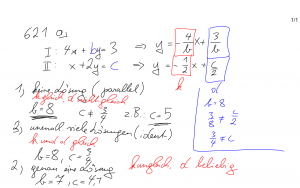 1/1
621 a)
I: 4x + by = 3 ⇒ y = -4/b x + 3/b
II: x + 2y = c ⇒ y = -1/2 x + c/2
k d
1) keine Lösung (parallel)
k gleich, d nicht gleich
b = 8 c ≠ 3/4 z.B.: c = 5
b = 8
3/8 ≠ c/2
3/4 ≠ c
3) unendl. viele Lösungen (ident)
k und d gleich
b = 8, c = 3/4
2) genau eine Lösung
k ungleich, d beliebig
b = 7, c = 4,7